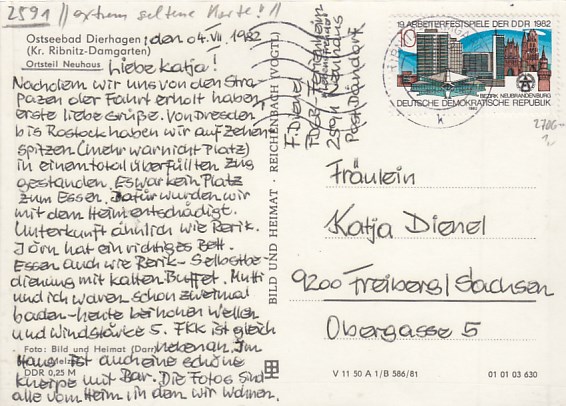 2591 || extrem seltene Karte! ||
Ostseebad Dierhagen, den 04. VII. 1982
(Kr. Ribnitz-Damgarten)
Ortsteil Neuhaus
Liebe Katja!
Nachdem wir uns von den Stra
pazen der Fahrt erholt haben,
erste liebe Grüße. Von Dresden
bis Rostock haben wir auf Zehen
spitzen (mehr war nicht Platz)
in einem total überfüllten Zug
gestanden. Es war kein Platz
zum Essen. Dafür wurden wir
mit dem Heim entschädigt.
Unterkunft ähnlich wie Rerik.
Jörn hat ein richtiges Bett.
Essen auch wie Rerik - Selbstbe-
dienung mit kaltem Buffet. Mutti
und ich waren schon zweimal
baden - heute bei hohen Wellen
und Windstärke 5. FKK ist gleich
nebenan. Im
Haus ist auch eine schöne
Kneipe mit Bar. Die Fotos sind
alle vom Heim, in dem wir wohnen.
Foto: Bild und Heimat (Darr)
DDR 0,25 M
BILD UND HEIMAT · REICHENBACH (VOGTL)
F. Dienel
FDGB-Ferienheim
2591 Neuhaus
Post Dändorf
19. ARBEITERFESTSPIELE DER DDR 1982
10
BEZIRK NEUBRANDENBURG
DEUTSCHE DEMOKRATISCHE REPUBLIK
Fräulein
Katja Dienel
9200 Freiberg/Sachsen
Obergasse 5
V 11 50 A 1/B 586/81
01 01 03 630